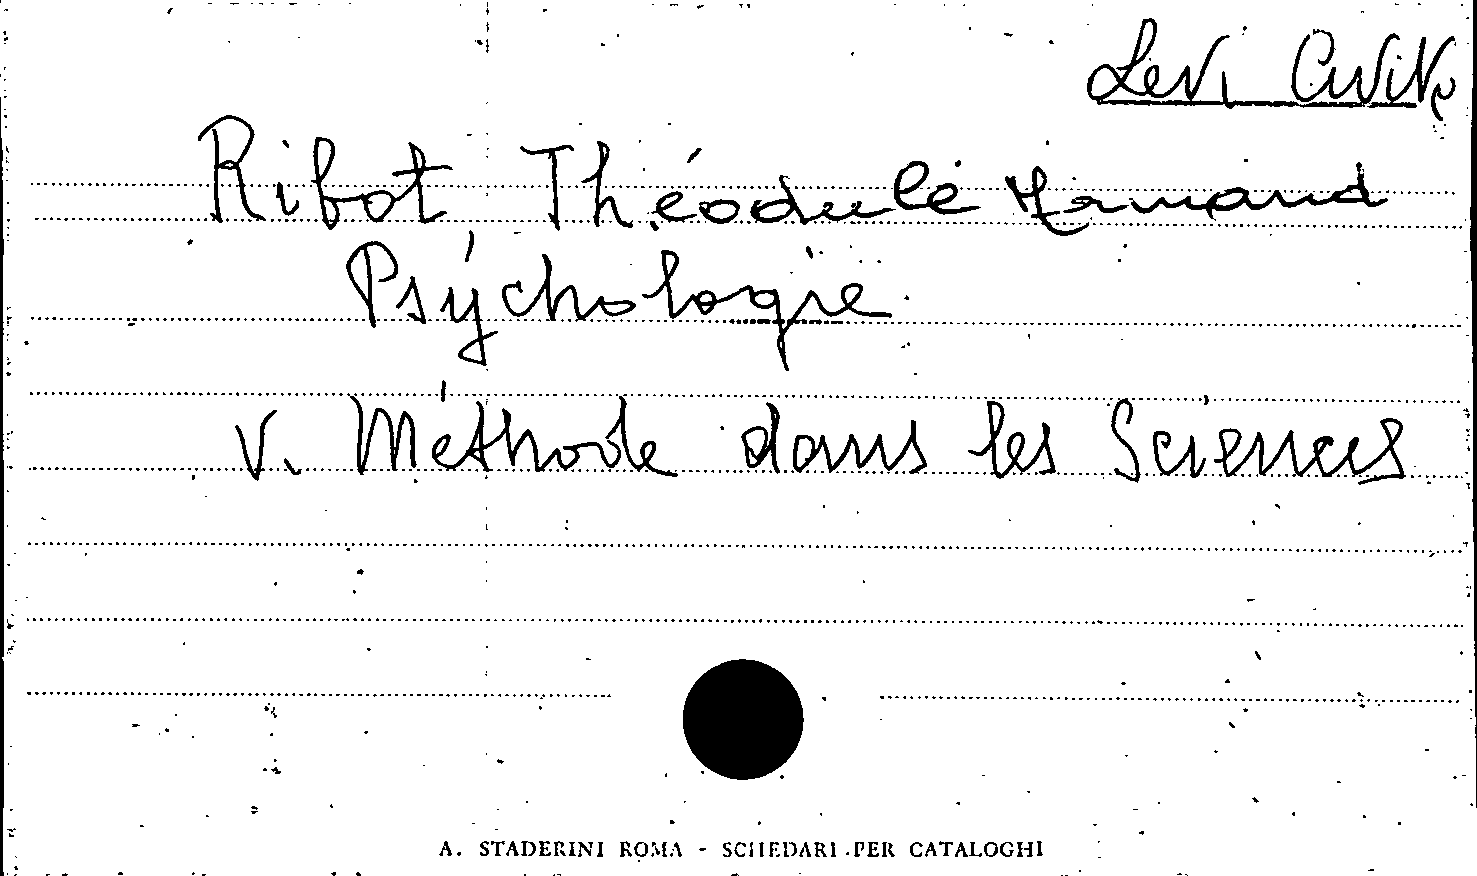 Levi Civita
Ribot Théodule Armand
Psychologie
V. Méthode dans les Sciences
A. STADERINI ROMA - SCHEDARI PER CATALOGHI